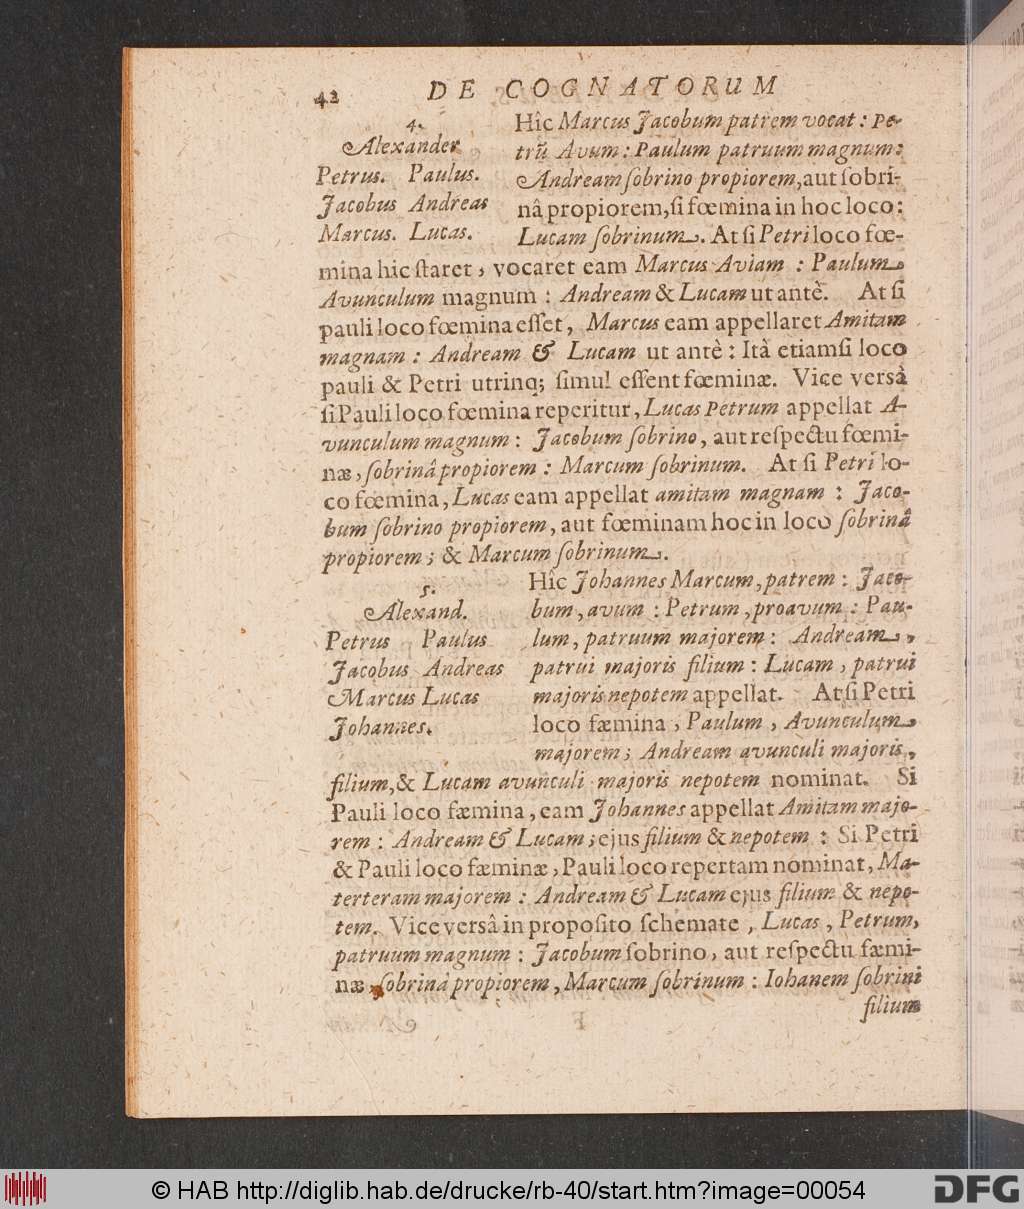 42 DE COGNATORUM
4.
Alexander
Petrus. Paulus.
Jacobus Andreas
Marcus. Lucas.
Hîc Marcus Jacobum patrem vocat: Pe-
trũ Avum: Paulum patruum magnum:
Andream ſobrino propiorem, aut ſobri-
nâ propiorem, ſi fœmina in hoc loco:
Lucam ſobrinum. At ſi Petri loco fœ-
mina hic ſtaret, vocaret eam Marcus Aviam: Paulum
Avunculum magnum: Andream & Lucam ut antè. At ſi
pauli loco fœmina eſſet, Marcus eam appellaret Amitam
magnam: Andream & Lucam ut antè: Ità etiamſi loco
pauli & Petri utrinq; ſimul eſſent fœminæ. Vice versâ
ſi Pauli loco fœmina reperitur, Lucas Petrum appellat A-
vunculum magnum: Jacobum ſobrino, aut reſpectu fœmi-
næ, ſobrinâ propiorem: Marcum ſobrinum. At ſi Petri lo-
co fœmina, Lucas eam appellat amitam magnam: Jaco-
bum ſobrino propiorem, aut fœminam hoc in loco ſobrinâ
propiorem; & Marcum ſobrinum.
5.
Alexand.
Petrus Paulus
Jacobus Andreas
Marcus Lucas
Johannes.
Hîc Johannes Marcum, patrem: Jaco-
bum, avum: Petrum, proavum: Pau-
lum, patruum majorem: Andream,
patrui majoris filium: Lucam, patrui
majoris nepotem appellat. At ſi Petri
loco fæmina, Paulum, Avunculum
majorem; Andream avunculi majoris,
filium, & Lucam avunculi majoris nepotem nominat. Si
Pauli loco fæmina, eam Johannes appellat Amitam majo-
rem: Andream & Lucam; ejus filium & nepotem: Si Petri
& Pauli loco fæminæ, Pauli loco repertam nominat, Ma-
terteram majorem: Andream & Lucam ejus filium & nepo-
tem. Vice versâ in propoſito ſchemate, Lucas, Petrum,
patruum magnum: Jacobum ſobrino, aut reſpectu fæmi-
næ, ſobrinâ propiorem, Marcum ſobrinum: Iohanem ſobrini
filium
© HAB http://diglib.hab.de/drucke/rb-40/start.htm?image=00054
DFG